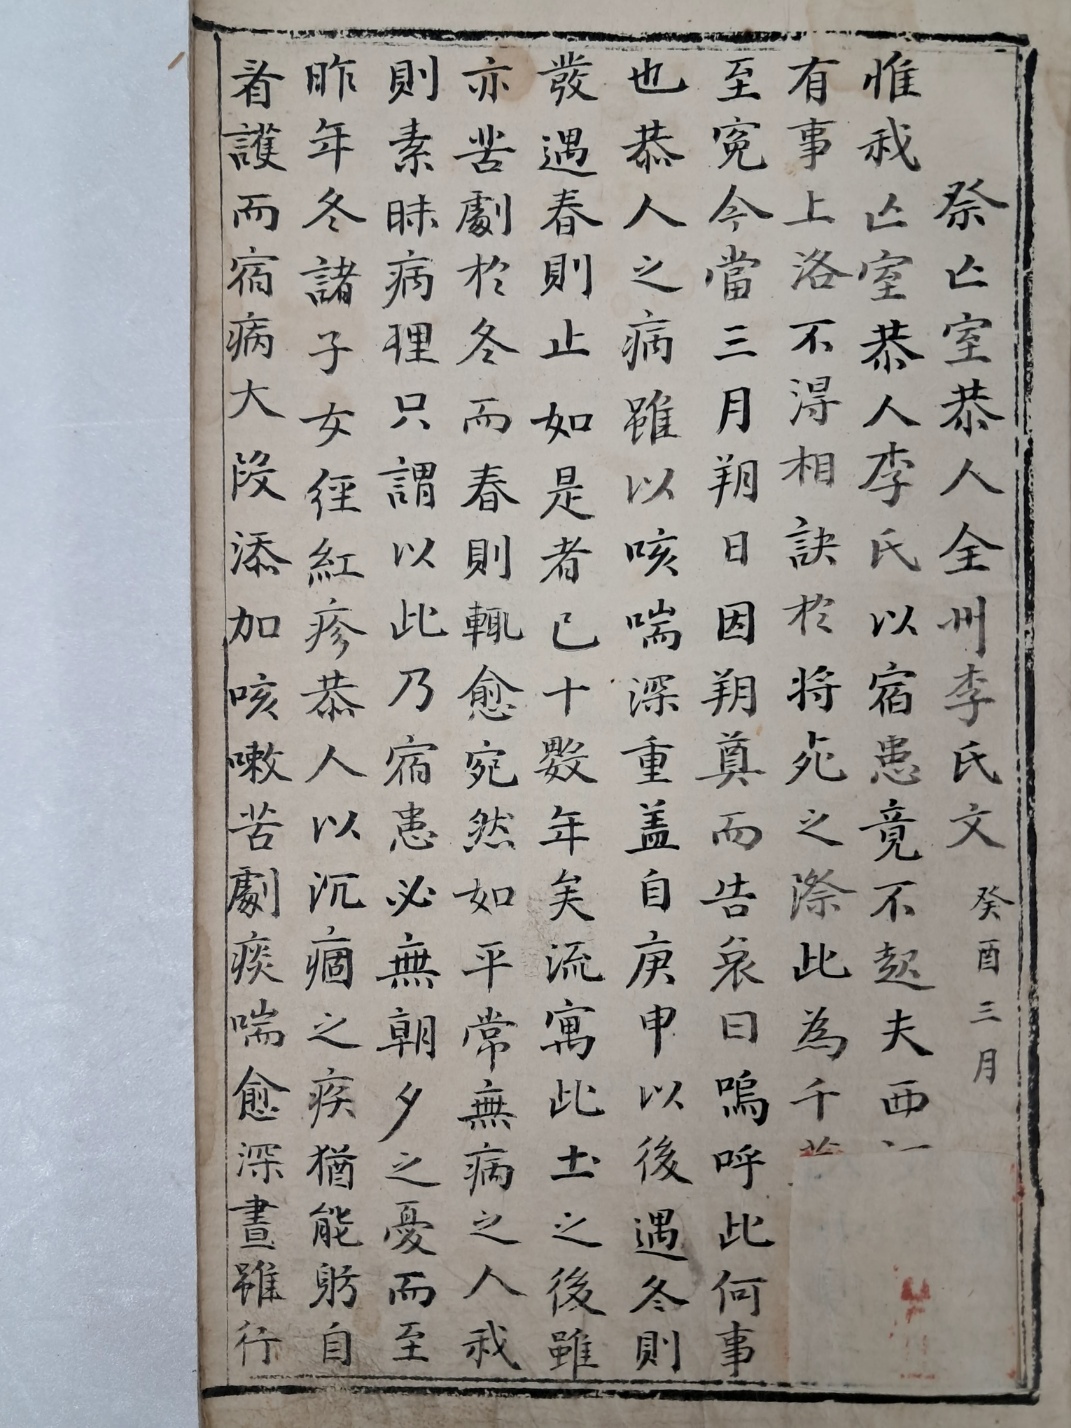 祭亡室恭人全州李氏文 癸酉三月
惟我亡室恭人李氏以宿患竟不起夫西
有事上洛不淂相訣於將死之際此為千
至寃今當三月朔日因朔奠而告哀曰嗚呼此何事
也恭人之病雖以咳喘深重盖自庚申以後遇冬則
發遇春則止如是者已十數年矣流寓此土之後雖
亦苦劇於冬而春則輒愈宛然如平常無病之人我
則素昧病理只謂以此乃宿患必無朝夕之憂而至
昨年冬諸子女徑紅疹恭人以沉痼之疾猶能躬自
看護而宿病大段添加咳嗽苦劇痰喘愈深晝雖行